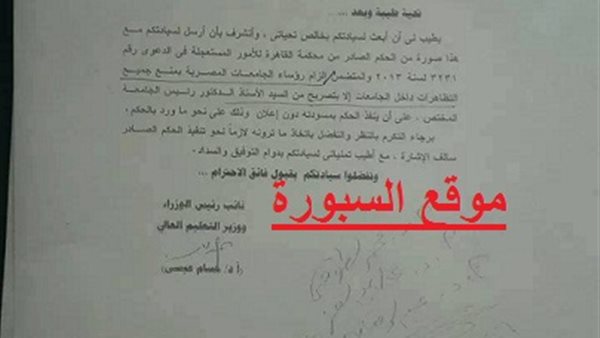 تحية طيبة وبعد ...
يطيب لى أن أبعث لسيادتكم بخالص تحياتى ، وأتشرف بأن أرسل لسيادتكم مع
هذا صورة من الحكم الصادر من محكمة القاهرة للأمور المستعجلة فى الدعوى رقم
٣٢٣١ لسنة ٢٠١٣ والمتضمن إلزام رؤساء الجامعات المصرية بمنع جميع
التظاهرات داخل الجامعات إلا بتصريح من السيد الأستاذ الدكتور رئيس الجامعة
المختص ، على أن ينفذ الحكم بمسودته دون إعلان وذلك على نحو ما ورد بالحكم.
برجاء التكرم بالنظر والتفضل باتخاذ ما ترونه لازماً نحو تنفيذ الحكم الصادر
سالف الإشارة ، مع أطيب تمنياتى لسيادتكم بدوام التوفيق والسداد.
وتفضلوا سيادتكم بقبول فائق الاحترام ...
موقع السبورة
نائب رئيس الوزراء
ووزير التعليم العالى
(أ.د/ حسام عيسى)